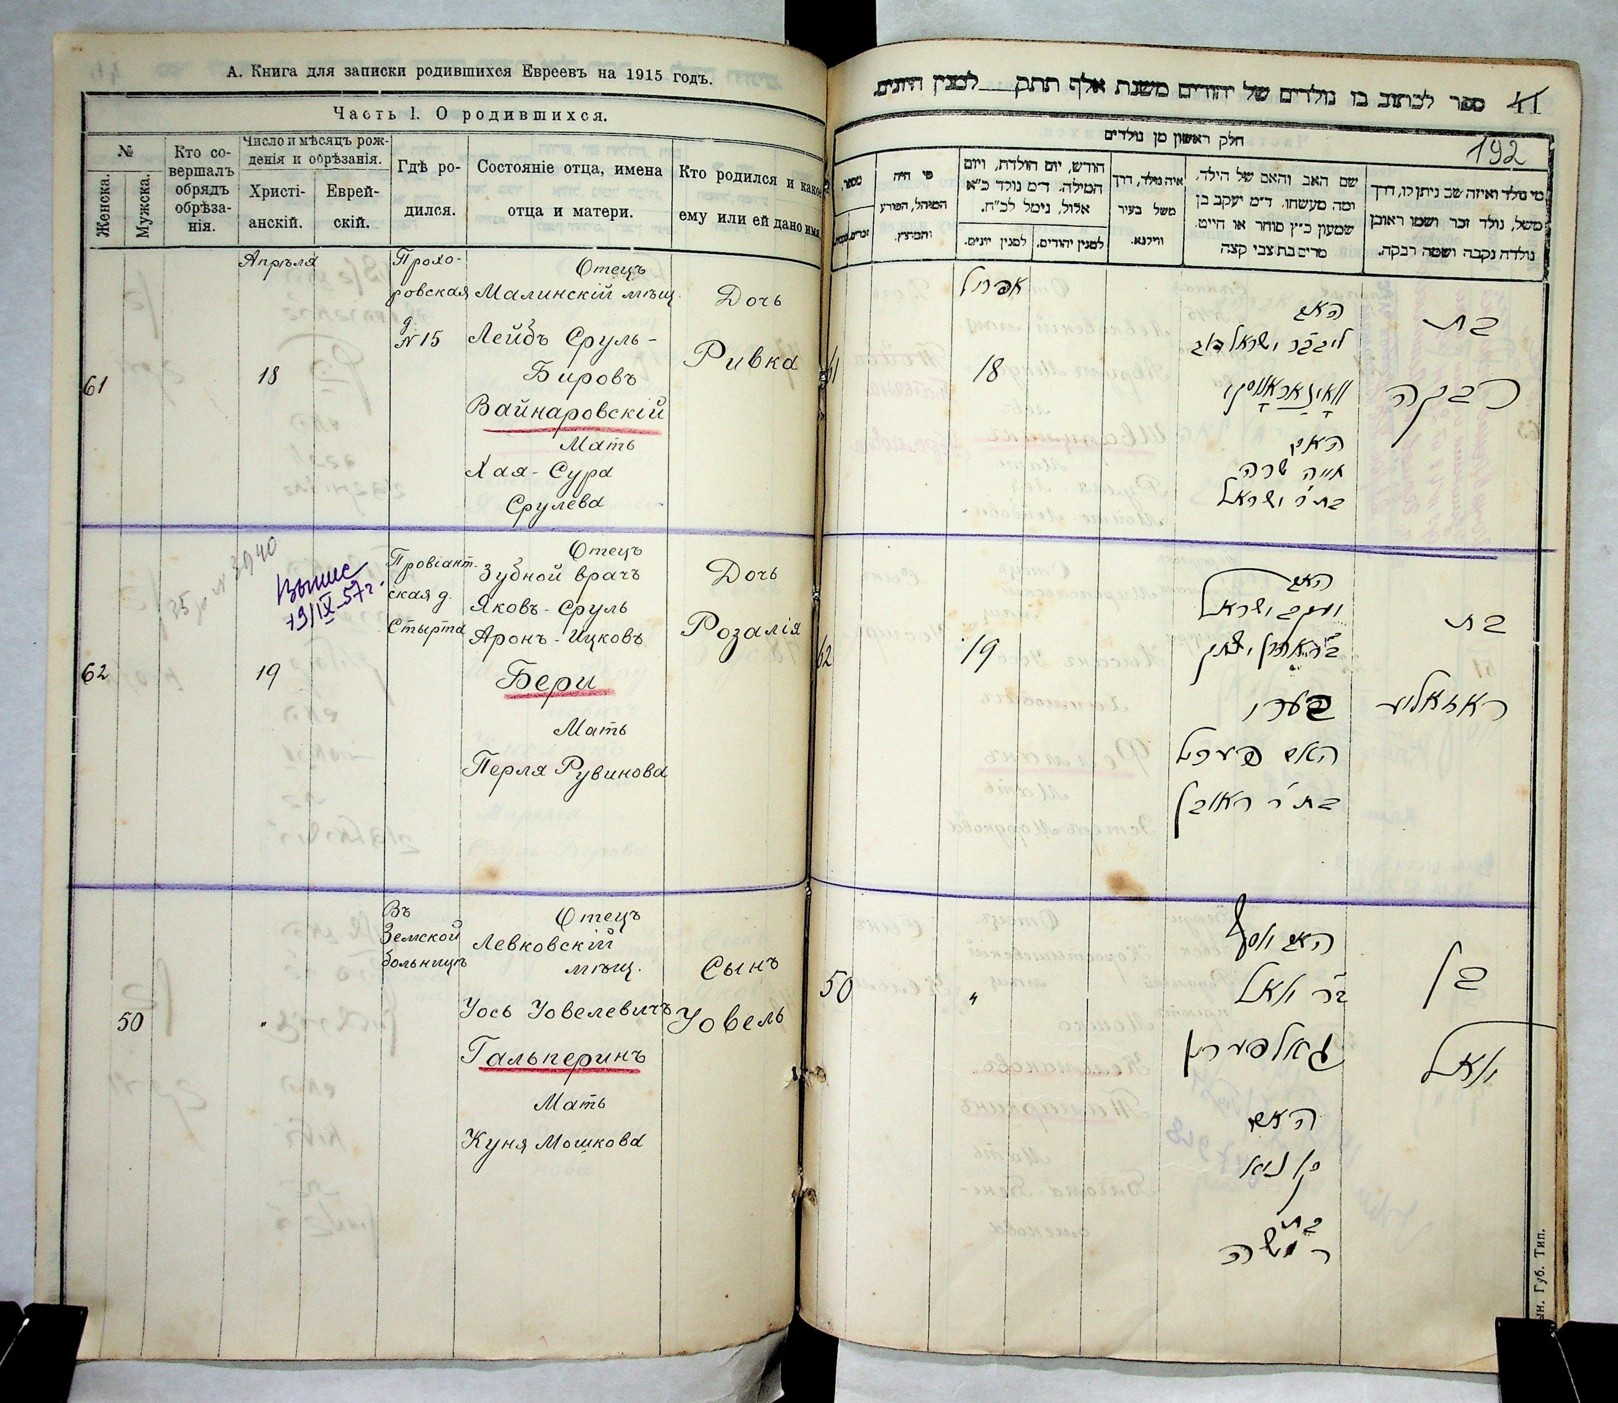 А. Книга для записки родившихся Евреевъ на 1915 годъ.
Часть I. О родившихся.
№
Женска.
Мужска.
Кто со-
вершалъ
обрядъ
обрѣза-
нія.
Число и мѣсяцъ рож-
денія и обрѣзанія.
Христі-
анскій.
Еврей-
скій.
Гдѣ ро-
дился.
Состояніе отца, имена
отца и матери.
Кто родился и какое
ему или ей дано имя.
61
Апрѣля
18
Прохо-
ровская
д
№15
Отецъ
Малинскій мѣщ.
Лейбъ Сруль-
Бировъ
Вайнаровскій
Мать
Хая-Сура
Срулева
Дочь
Ривка
62
Выпис
19/IX-57г.
19
Провіант.
ская д.
Стырта
Отецъ
Зубной врачъ
Яковъ-Сруль
Аронъ-Ицковъ
Бери
Мать
Перля Рувинова
Дочь
Розалія
50
"
Въ
Земской
больницѣ
Отецъ
Левковскій
мѣщ.
Уось Уовелевичъ
Гальперинъ
Мать
Куня Мошкова
Сынъ
Уовель
ספר לכתוב בו נולדים של יהודים משנת אלף תתק לסנין היונים.
41
192
חלק ראשון מן נולדים
מספר.
מי היה
המוהל, הפורע
והמוצץ.
חודש, יום הולדת, ויום
המילה. ד״מ נולד כ״א
אלול, נימל לכ״ח.
למנין יונים.
למנין יהודים.
איה נולד, דרך
משל בעיר
ווילנא.
שם האב והאם של הילד.
ומה מעשהו. ד״מ יעקב בן
שמעון כ״ץ סוחר או חייט.
מרים בת צבי קצה
מי נולד ואיזה שם ניתן לו, דרך
משל, נולד זכר ושמו ראובן
נולדה נקבה ושמה רבקה.
אפריל
18
האב
האם
חייה שרה
בת ר׳ ישראל
בת
רבקה
62
19
האב
יעקב ישראל
בערי
האם פערל
בת ר׳ ראובן
בת
ראזאליע
50
"
האב יוסף
ב״ר יואל
גאלפערין
האם
קוניא
בת
ר׳ משה
בן
יואל
ын. Губ. Тип.